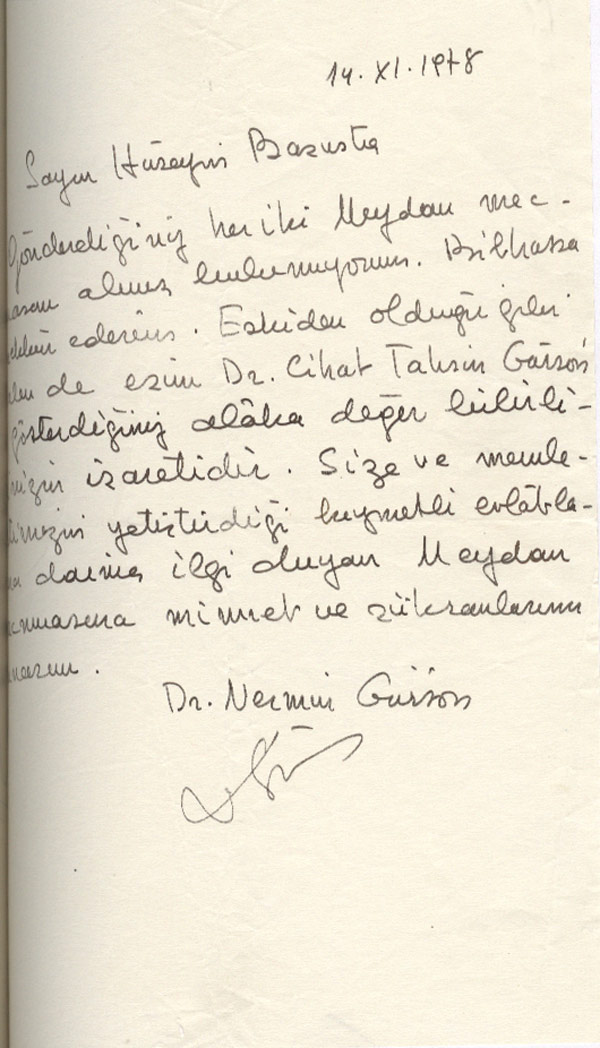 14. XI. 1978
Sayın Hüseyin
Gönderdiğiniz her iki Meydan mec-
almış bulunuyorum. Bilhassa
ederim. Eskiden olduğu gibi
de eşim Dr. Cihat Tahsin Gürson
gösterdiğiniz alâka değer bilirli-
nizin işaretidir. Size ve memle-
timizin yetiştirdiği kıymetli evlâtla-
daima ilgi duyan Meydan
cmuasına minnet ve şükranlarımı
Dr. Nermin Gürson